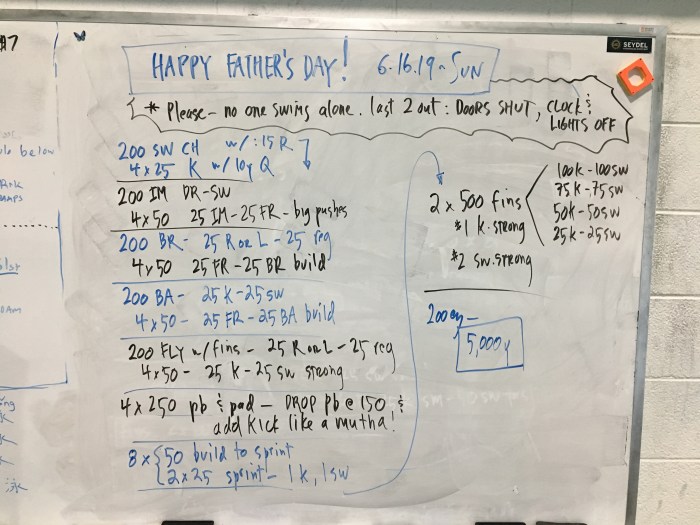 #7
HAPPY FATHER'S DAY! 6.16.19 - SUN
SEYDEL
* Please - no one swims alone. last 2 out: DOORS SHUT, CLOCK &
LIGHTS OFF
below
MAPS
200 SW CH w/ :15 R
4 x 25 K w/ 10y Q
200 IM DR-SW
4 x 50 25 IM - 25 FR - big pushes
200 BR - 25 R or L - 25 reg
4 x 50 25 FR - 25 BR build
200 BA - 25 K - 25 SW
4 x 50 - 25 FR - 25 BA build
200 FLY w/ fins - 25 R or L - 25 reg
4 x 50 - 25 K - 25 SW strong
4 x 250 pb & pad - DROP pb @ 150, &
add KICK like a mutha!
8 x { 50 build to sprint
2 x 25 sprint - 1 K, 1 SW
2 x 500 fins
#1 K. strong
#2 SW. strong
100K - 100SW
75K - 75SW
50K - 50SW
25K - 25SW
200 ey -
5,000y
泳